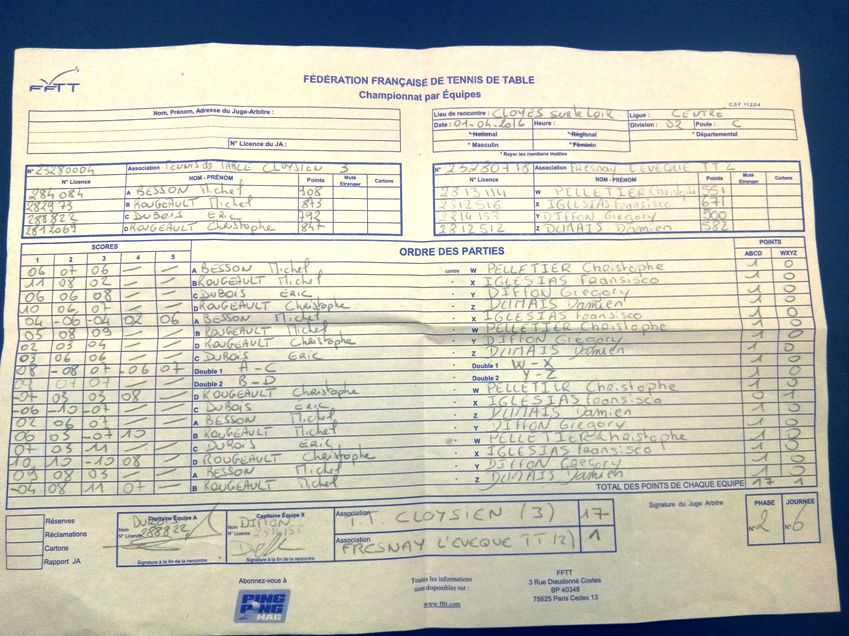 FFTT
FÉDÉRATION FRANÇAISE DE TENNIS DE TABLE
Championnat par Équipes
C.S.F. 11.2.0.4
Nom, Prénom, Adresse du Juge-Arbitre :
N° Licence du JA :
Lieu de rencontre : CLOYES sur le Loir
Ligue : CENTRE
Date : 01-04-2016 Heure :
Division : D2 Poule : C
*National *Régional *Départemental
*Masculin *Féminin
* Rayer les mentions inutiles
N° 23280004 Association TENNIS de TABLE CLOYSIEN 3
N° Licence NOM - PRÉNOM Points Muté Etranger Cartons
284084 A BESSON Michel 908
282973 B ROUGEAULT Michel 873
288822 C DUBOIS ERIC 792
2812069 D ROUGEAULT Christophe 847
Association FRESNAY L'EVEQUE TT 2
N° Licence NOM - PRÉNOM Points Muté Etranger Cartons
W PELLETIER Christophe 551
2812516 X IGLESIAS fransisco 671
2814153 Y DIFFON Gregory 500
2812512 Z DUMAIS Damien 582
SCORES ORDRE DES PARTIES POINTS
1 2 3 4 5 ABCD WXYZ
06 07 06 — — A BESSON Michel contre W PELLETIER Christophe 1 0
11 08 02 — — B ROUGEAULT Michel - X IGLESIAS Fransisco 1 0
06 06 08 — — C DUBOIS ERIC - Y DIFFON Gregory 1 0
10 06 07 — — D ROUGEAULT Christophe - Z DUMAIS Damien 1 0
04 -06 -04 02 06 A BESSON Michel - X IGLESIAS Fransisco 1 0
05 08 09 — — B ROUGEAULT Michel - W PELLETIER Christophe 1 0
02 05 04 — — D ROUGEAULT Christophe - Y DIFFON Gregory 1 0
03 06 06 — — C DUBOIS ERIC - Z DUMAIS Damien 1 0
08 -08 07 -06 07 Double 1 A-C - Double 1 W-X 1 0
09 07 07 — — Double 2 B-D - Double 2 Y-Z 1 0
-07 03 03 08 — D ROUGEAULT Christophe - W PELLETIER Christophe 1 0
-06 -10 -07 — — C DUBOIS ERIC - X IGLESIAS fransisco 0 1
02 06 07 — — A BESSON Michel - Z DUMAIS Damien 1 0
06 03 -07 10 — B ROUGEAULT Michel - Y DIFFON Gregory 1 0
07 03 11 — — C DUBOIS ERIC - W PELLETIER Christophe 1 0
10 10 -10 08 — D ROUGEAULT Christophe - X IGLESIAS fransisco 1 0
09 08 03 — — A BESSON Michel - Y DIFFON Gregory 1 0
-04 08 11 07 — B ROUGEAULT Michel - Z DUMAIS Damien 1 0
TOTAL DES POINTS DE CHAQUE EQUIPE 17 1
Réserves
Réclamations
Cartons
Rapport JA
Capitaine Équipe A
Nom DUBOIS
N° Licence 288822
Signature à la fin de la rencontre
Capitaine Équipe X
Nom DIFFON
N° Licence
Signature à la fin de la rencontre
Association T.T. CLOYSIEN (3) 17
Association FRESNAY L'EVEQUE TT (2) 1
Signature du Juge Arbitre
PHASE JOURNÉE
N° 2 N° 6
Abonnez-vous à
PING PONG MAG
Toutes les informations
sont disponibles sur :
www.fftt.com
FFTT
3 Rue Dieudonné Costes
BP 40348
75625 Paris Cedex 13